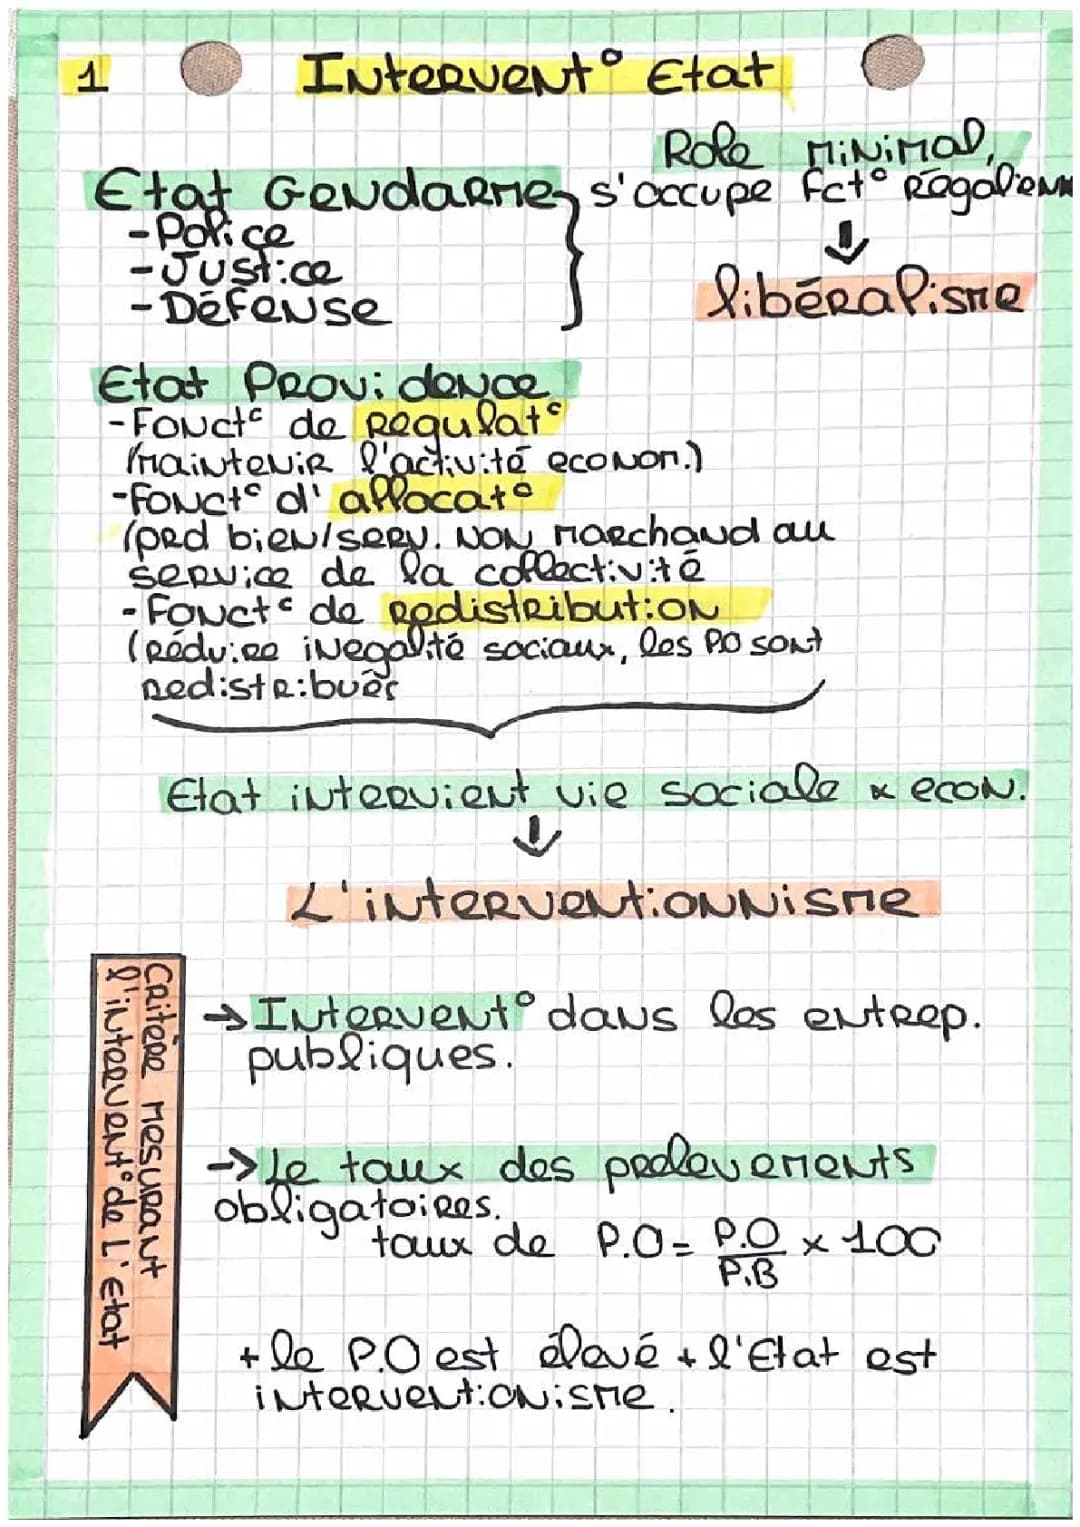 1
Intervent° Etat
Role minimal,
Etat Gendarme } s'occupe fct° Régalienn
- Police
- Justice
- Défense
↓
libéralisme
Etat Providence
- Fonct° de Regulat°
(maintenir l'activité econom.)
- Fonct° d'allocat°
(prd bien/serv. non marchand au
service de la collectivité
- Fonct° de Redistribution
(Réduire inegalité sociaux, les PO sont
redistribués
Etat intervient vie sociale x econ.
↓
L'interventionnisme
Critère mesurant
l'intervent° de L'Etat
→ Intervent° dans les entrep.
publiques.
-> Le taux des prelevements
obligatoires.
taux de P.O = P.O / P.B x 100
+ le P.O est élevé + l'Etat est
interventionisme.